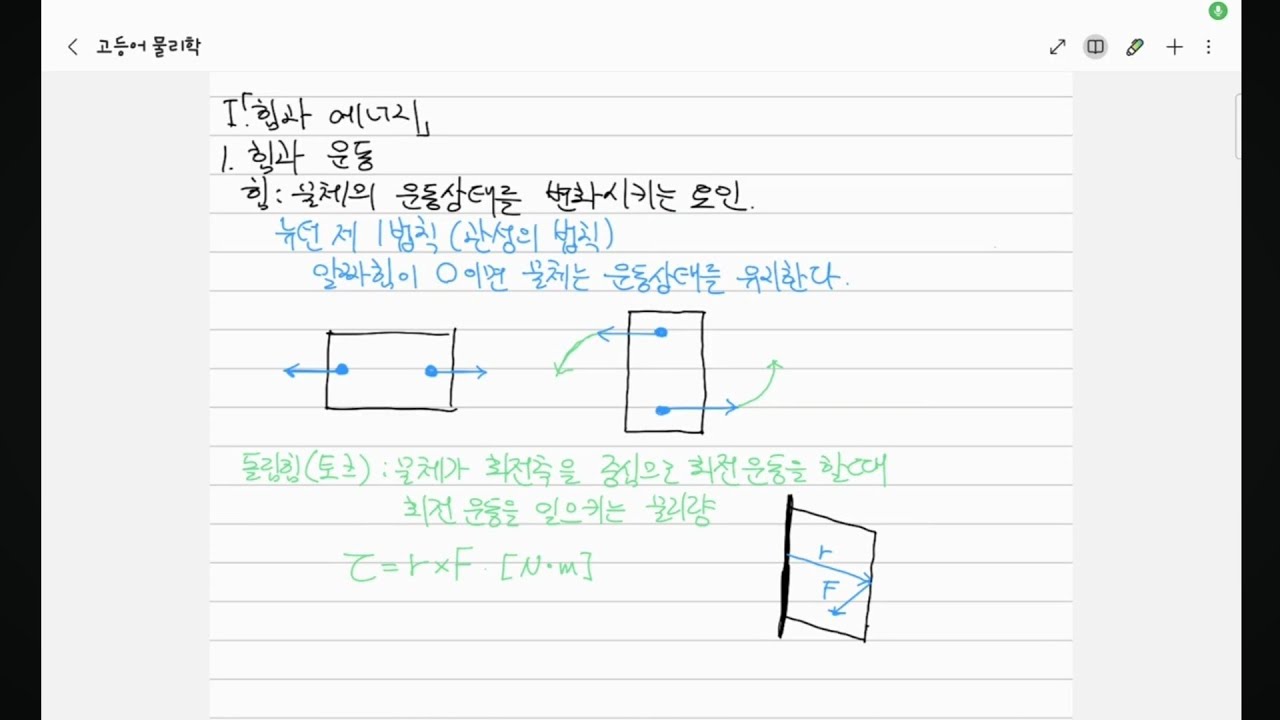 고등어 물리학
I.「힘과 에너지」
1. 힘과 운동
힘: 물체의 운동상태를 변화시키는 요인.
뉴턴 제 1법칙 (관성의 법칙)
알짜힘이 0이면 물체는 운동상태를 유지한다.
돌림힘(토크) : 물체가 회전축을 중심으로 회전운동을 할때
회전 운동을 일으키는 물리량
τ = r × F . [N·m]
r
F